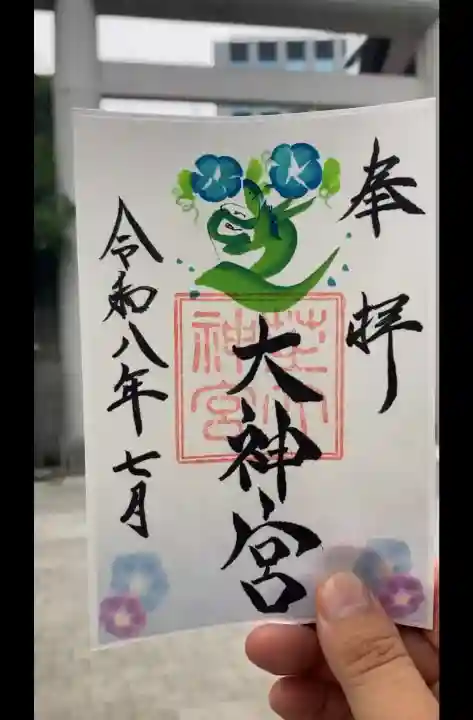 奉拝
芝大神宮
芝大
神宮
令和八年七月